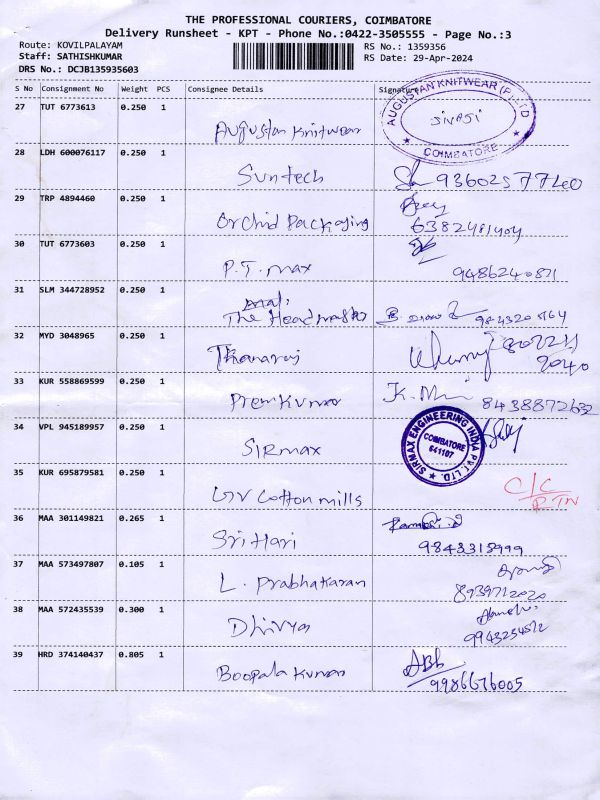 THE PROFESSIONAL COURIERS, COIMBATORE
Delivery Runsheet - KPT - Phone No.:0422-3505555 - Page No.:3
Route: KOVILPALAYAM
RS No.: 1359356
Staff: SATHISHKUMAR
RS Date: 29-Apr-2024
DRS No.: DCJB135935603
S No Consignment No Weight PCS Consignee Details Signature
27 TUT 6773613 0.250 1
AUGUSTAN KNITWEAR (P) LTD
SIVAJI
★ COIMBATORE ★
Augustan Knitwear
28 LDH 600076117 0.250 1
Suntech
29 TRP 4894460 0.250 1
Orchid Packaging
6382481404
30 TUT 6773603 0.250 1
P.T. max
9486240871
31 SLM 344728952 0.250 1
The Headmaster
32 MYD 3048965 0.250 1
Thanaraj
33 KUR 558869599 0.250 1
Premkumar
8438872632
34 VPL 945189957 0.250 1
SIRMAX ENGINEERING INDIA PVT. LTD.
COIMBATORE
641107
Sirmax
35 KUR 695879581 0.250 1
C/C
RTN
GV Cotton mills
36 MAA 301149821 0.265 1
Sri Hari
9843313999
37 MAA 573497807 0.105 1
L. Prabhakaran
8939712020
38 MAA 572435539 0.300 1
Dhivya
9943234572
39 HRD 374140437 0.805 1
Boopala kumar
9986676005